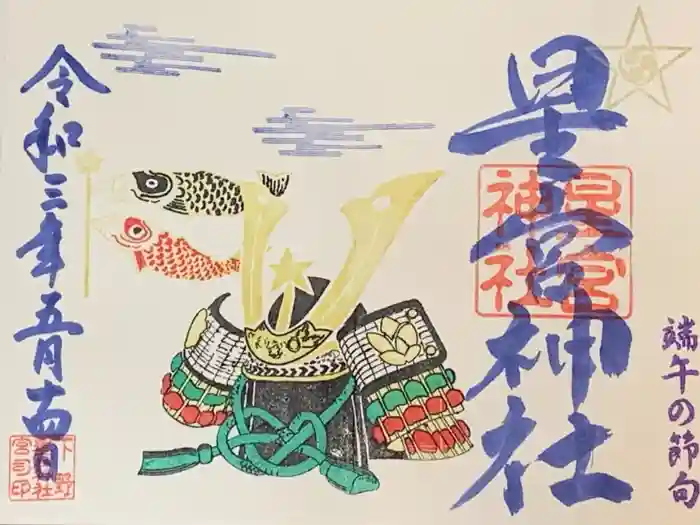 星宮神社
星宮
神社
端午の節句
令和三年五月十四日
下野
星宮神社
宮司印